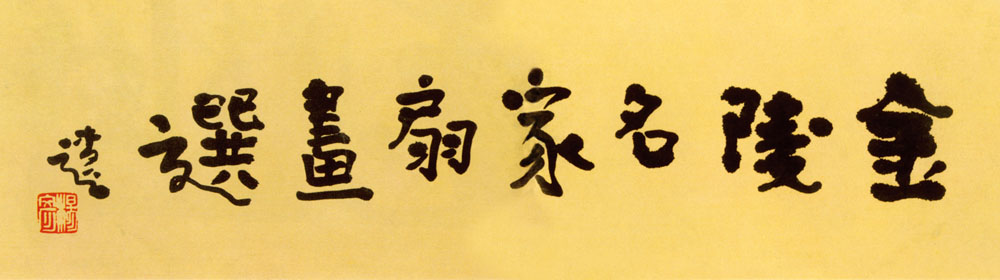 金陵名家扇畫選